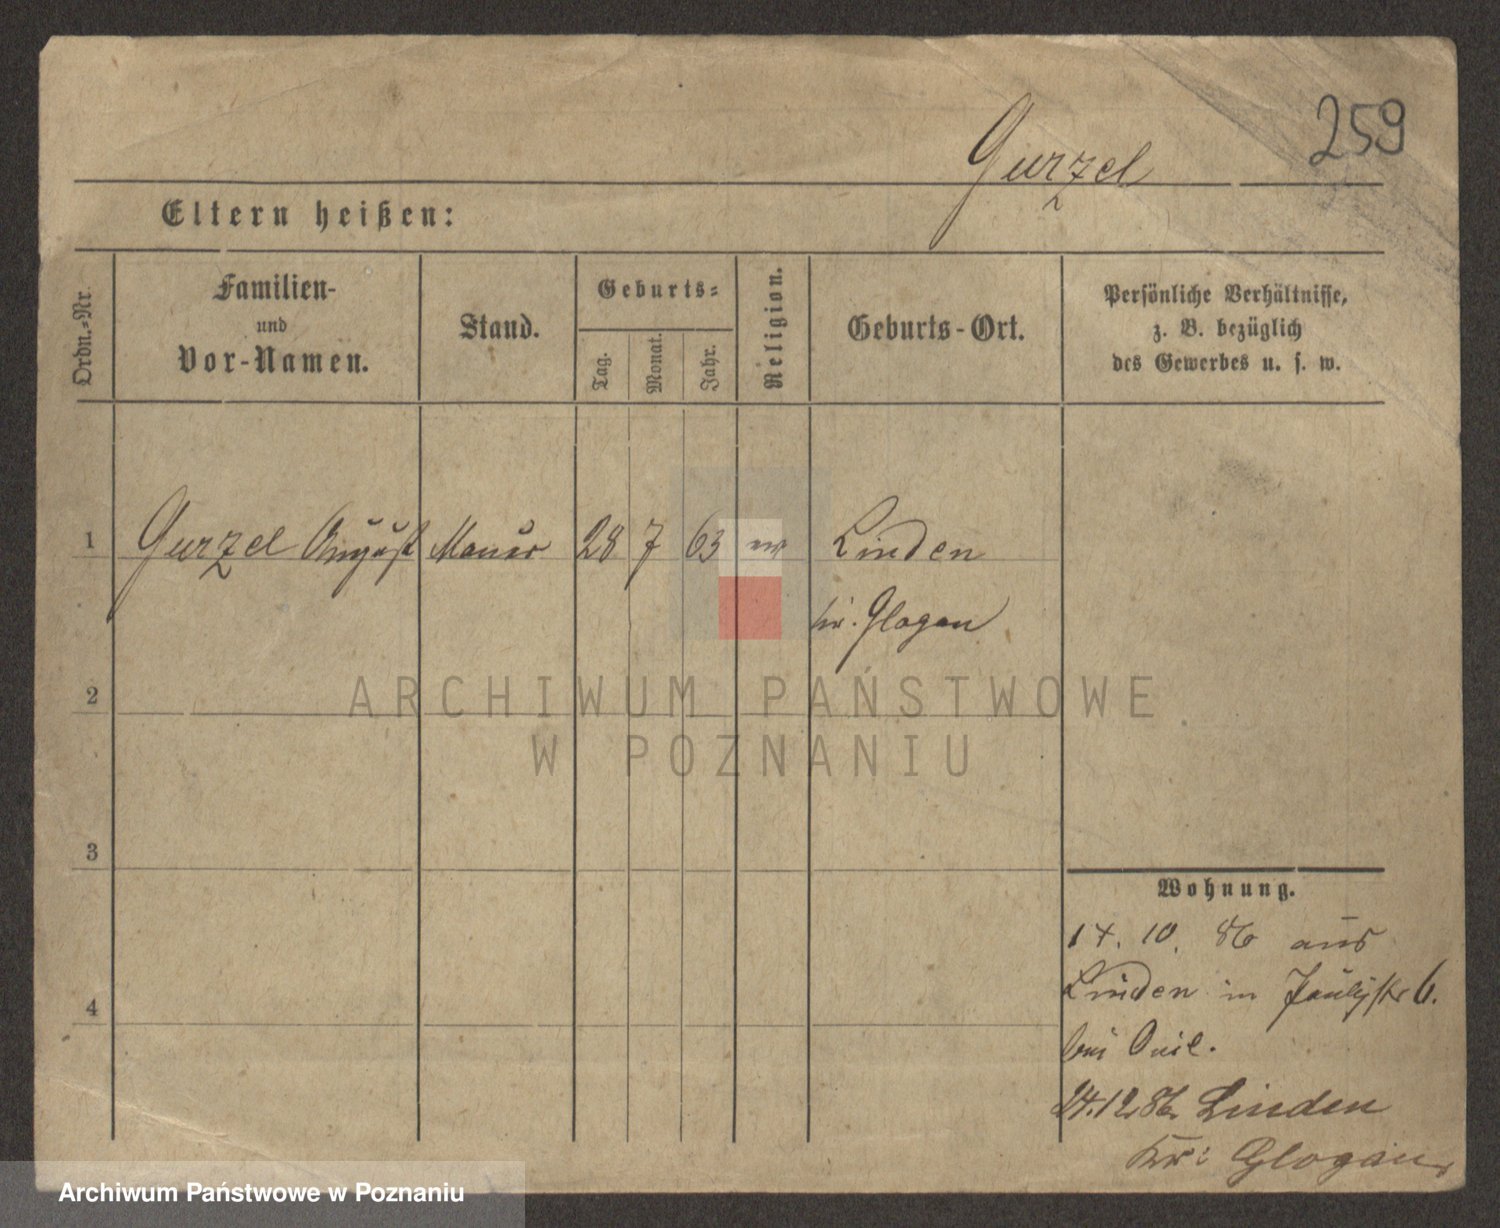 259
Gurzel
Eltern heißen:
Ordn.-Nr.
Familien-
und
Vor-Namen.
Stand.
Geburts-
Tag.
Monat.
Jahr.
Religion.
Geburts-Ort.
Persönliche Verhältnisse,
z. B. bezüglich
des Gewerbes u. s. w.
1 Gurzel August Maurer 28 7 63 Linden
Kr. Glogau
2
ARCHIWUM PAŃSTWOWE
W POZNANIU
3
Wohnung.
14. 10. 86 aus
4
Linden in 6.
bei
24.12.86 Linden
Kr: Glogau
Archiwum Państwowe w Poznaniu